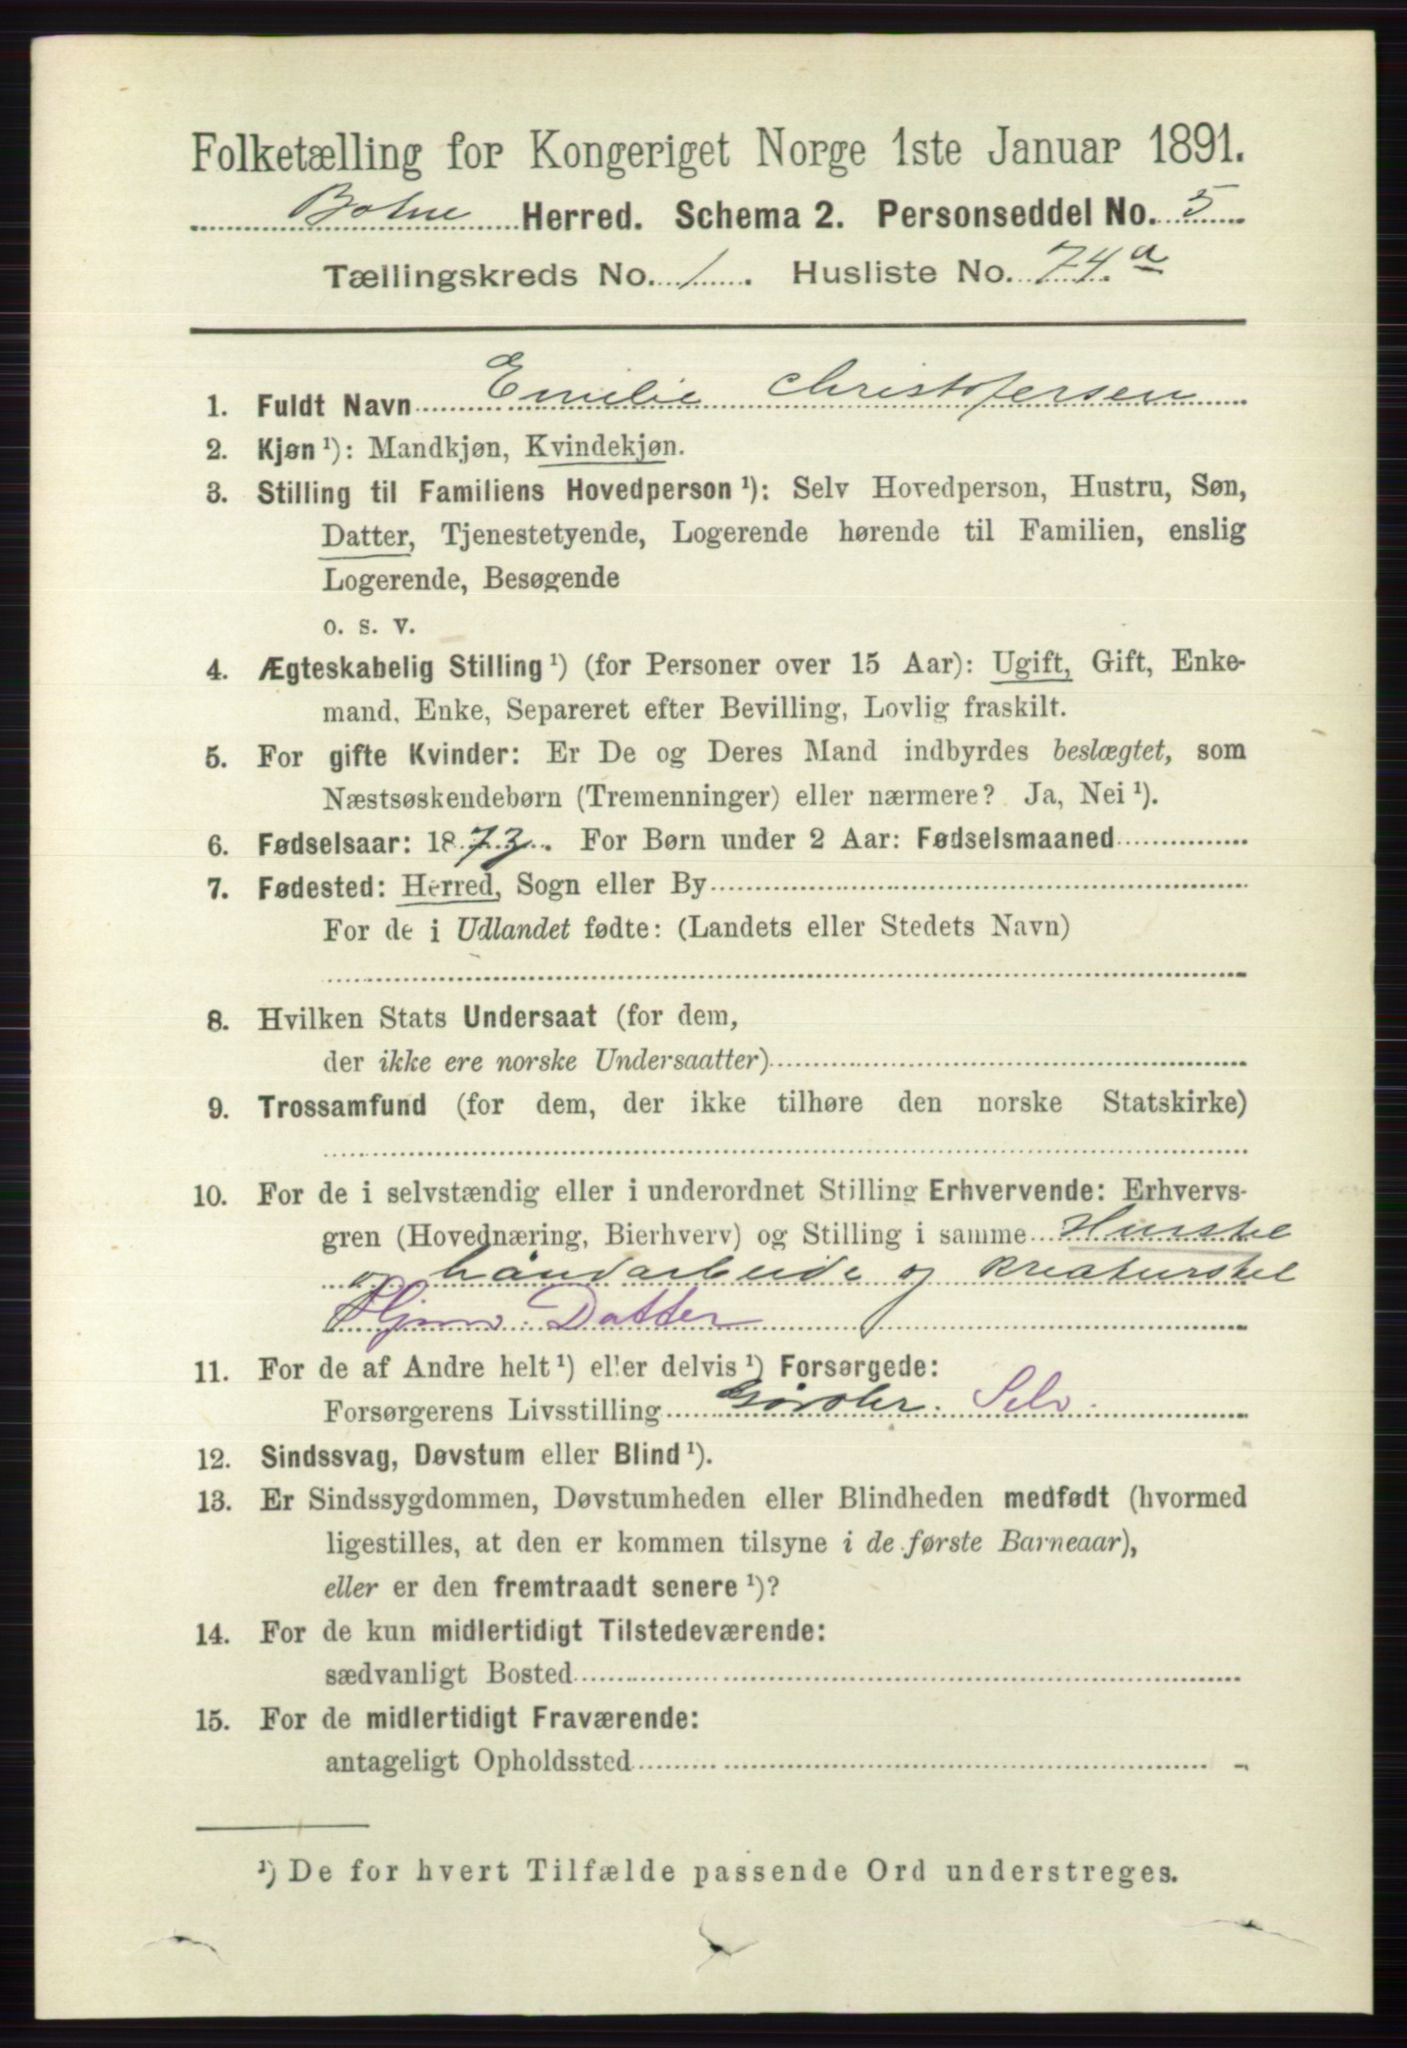 Folketælling for Kongeriget Norge 1ste Januar 1891.
Botne Herred. Schema 2. Personseddel No. 5
Tællingskreds No. 1. Husliste No. 74 a
1. Fuldt Navn Emilie Christofersen
2. Kjøn ¹): Mandkjøn, Kvindekjøn.
3. Stilling til Familiens Hovedperson ¹): Selv Hovedperson, Hustru, Søn,
Datter, Tjenestetyende, Logerende hørende til Familien, enslig
Logerende, Besøgende
o. s. v.
4. Ægteskabelig Stilling ¹) (for Personer over 15 Aar): Ugift, Gift, Enke-
mand, Enke, Separeret efter Bevilling, Lovlig fraskilt.
5. For gifte Kvinder: Er De og Deres Mand indbyrdes beslægtet, som
Næstsøskendebørn (Tremenninger) eller nærmere? Ja, Nei ¹).
6. Fødselsaar: 1873. For Børn under 2 Aar: Fødselsmaaned
7. Fødested: Herred, Sogn eller By
For de i Udlandet fødte: (Landets eller Stedets Navn)
8. Hvilken Stats Undersaat (for dem,
der ikke ere norske Undersaatter)
9. Trossamfund (for dem, der ikke tilhøre den norske Statskirke)
10. For de i selvstændig eller i underordnet Stilling Erhvervende: Erhvervs-
gren (Hovednæring, Bierhverv) og Stilling i samme Husstel
og håndarbeide og Kreaturstel
Hjemv. Datter
11. For de af Andre helt ¹) eller delvis ¹) Forsørgede:
Forsørgerens Livsstilling Selv.
12. Sindssvag, Døvstum eller Blind ¹).
13. Er Sindssygdommen, Døvstumheden eller Blindheden medfødt (hvormed
ligestilles, at den er kommen tilsyne i de første Barneaar),
eller er den fremtraadt senere ¹)?
14. For de kun midlertidigt Tilstedeværende:
sædvanligt Bosted
15. For de midlertidigt Fraværende:
antageligt Opholdssted
¹) De for hvert Tilfælde passende Ord understreges.